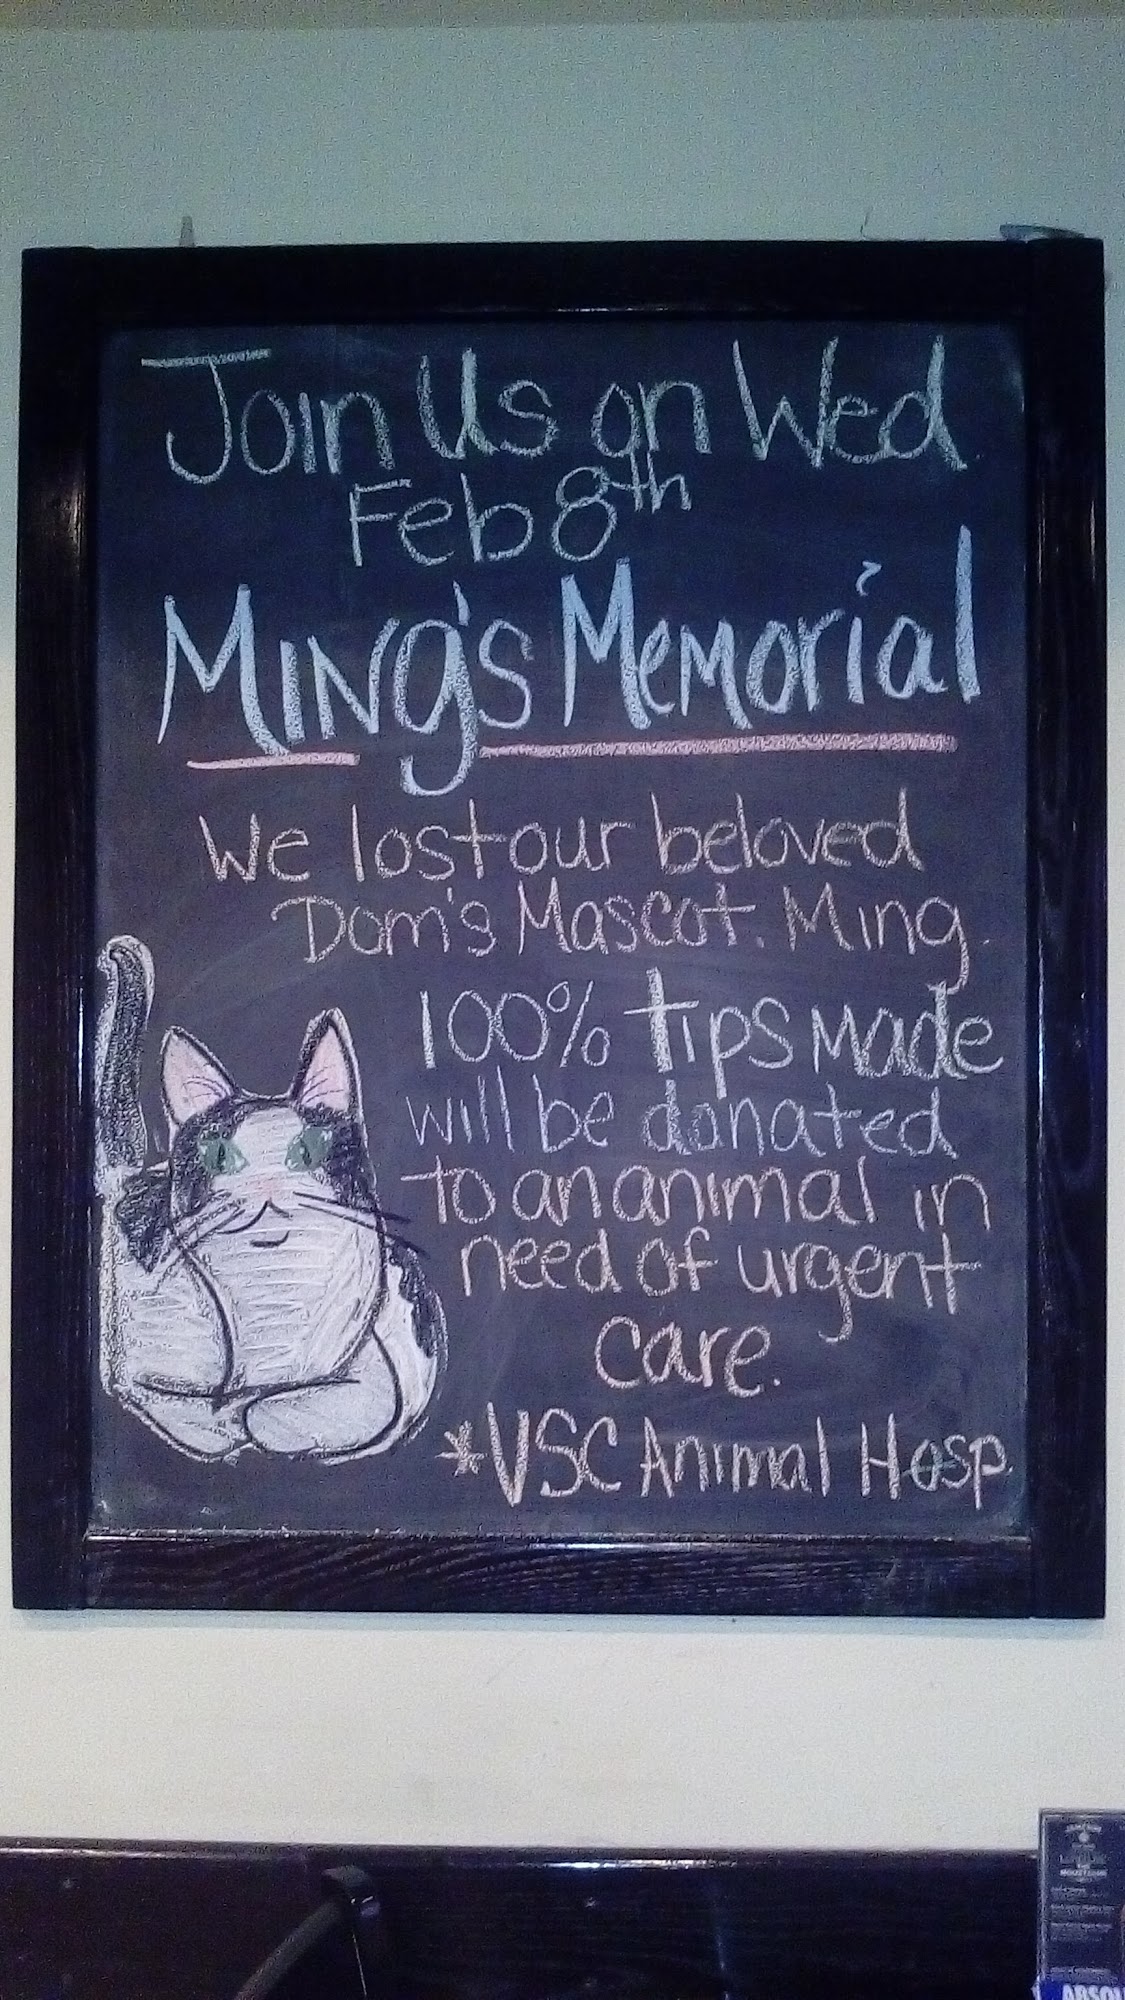 Join Us on Wed
Feb 8th
Ming's Memorial
We lost our beloved
Dom's Mascot. Ming
100% tips made
will be donated
to an animal in
need of urgent
care.
*VSC Animal Hosp.
ABSOL